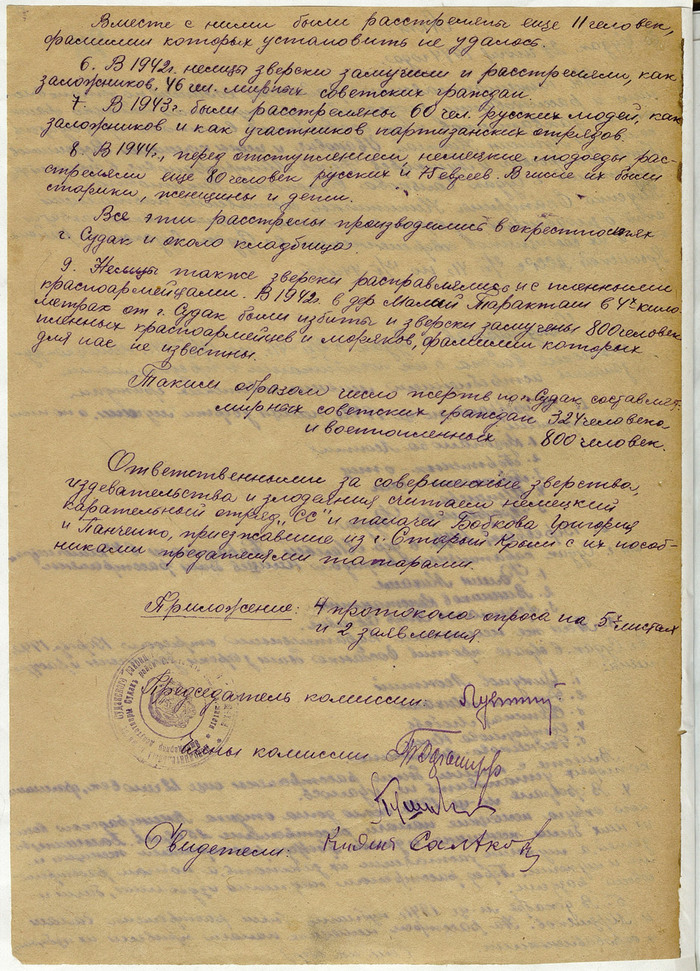 Вместе с ними были расстреляны еще 11 человек,
фамилии которых установить не удалось.
6. В 1942 г. немцы зверски замучили и расстреляли, как
заложников, 46 чел. мирных советских граждан.
7. В 1943 г. были расстреляны 60 чел. русских людей, как
заложников и как участников партизанских отрядов.
8. В 1944 г., перед отступлением, немецкие людоеды рас-
стреляли еще 80 человек русских и евреев. В числе их были
старики, женщины и дети.
Все эти расстрелы производились в окрестностях
г. Судак и около кладбища.
9. Немцы также зверски расправлялись и с пленными
красноармейцами. В 1942 г. в дер. Малый Таракташ в 4х кило-
метрах от г. Судак были избиты и зверски замучены 800 человек
пленных красноармейцев и моряков, фамилии которых
для нас не известны.
Таким образом число жертв по г. Судак составляет:
мирных советских граждан 324 человека
и военнопленных 800 человек.
Ответственными за совершенные зверства,
издевательства и злодеяния считаем немецкий
карательный отряд „СС" и палачей Бобкова Григория
и Панченко, приезжавшие из г. Старый Крым с их пособ-
никами предателями татарами.
Приложение: 4 протокола опроса на 5х листах
и 2 заявления
Председатель комиссии:
Члены комиссии
Свидетели: